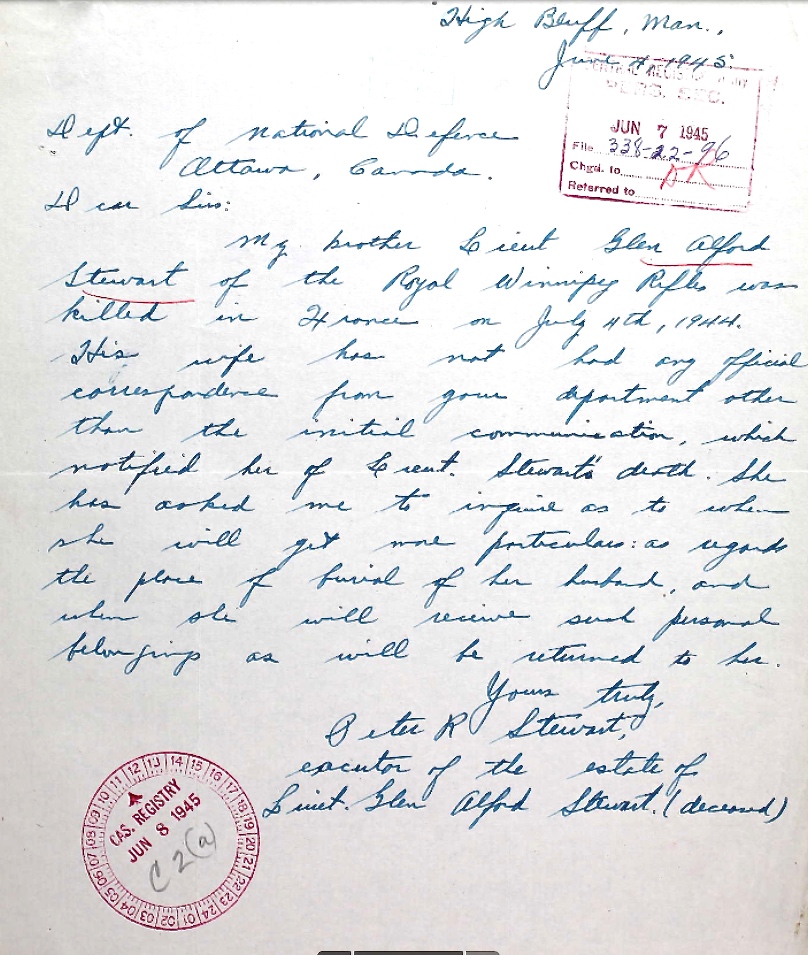 High Bluff, Man.,
June 4, 1945.
PERS. SEC.
JUN 7 1945
File 338-22-96
Chgd. to DK
Referred to
Dept. of National Defence
Ottawa, Canada.
Dear Sirs:
My brother Lieut Glen Alford
Stewart of the Royal Winnipeg Rifles was
killed in France on July 4th, 1944.
His wife has not had any official
correspondence from your department other
than the initial communication, which
notified her of Lieut. Stewart's death. She
has asked me to inquire as to when
she will get more particulars: as regards
the place of burial of her husband, and
when she will receive such personal
belongings as will be returned to her.
Yours truly,
Peter R Stewart,
executor of the estate of
Lieut. Glen Alford Stewart. (deceased)
CAS. REGISTRY
JUN 8 1945
C2(a)
01 02 03 04 05 06 07 08 09 10 11 12 13 14 15 16 17 18 19 20 21 22 23 24